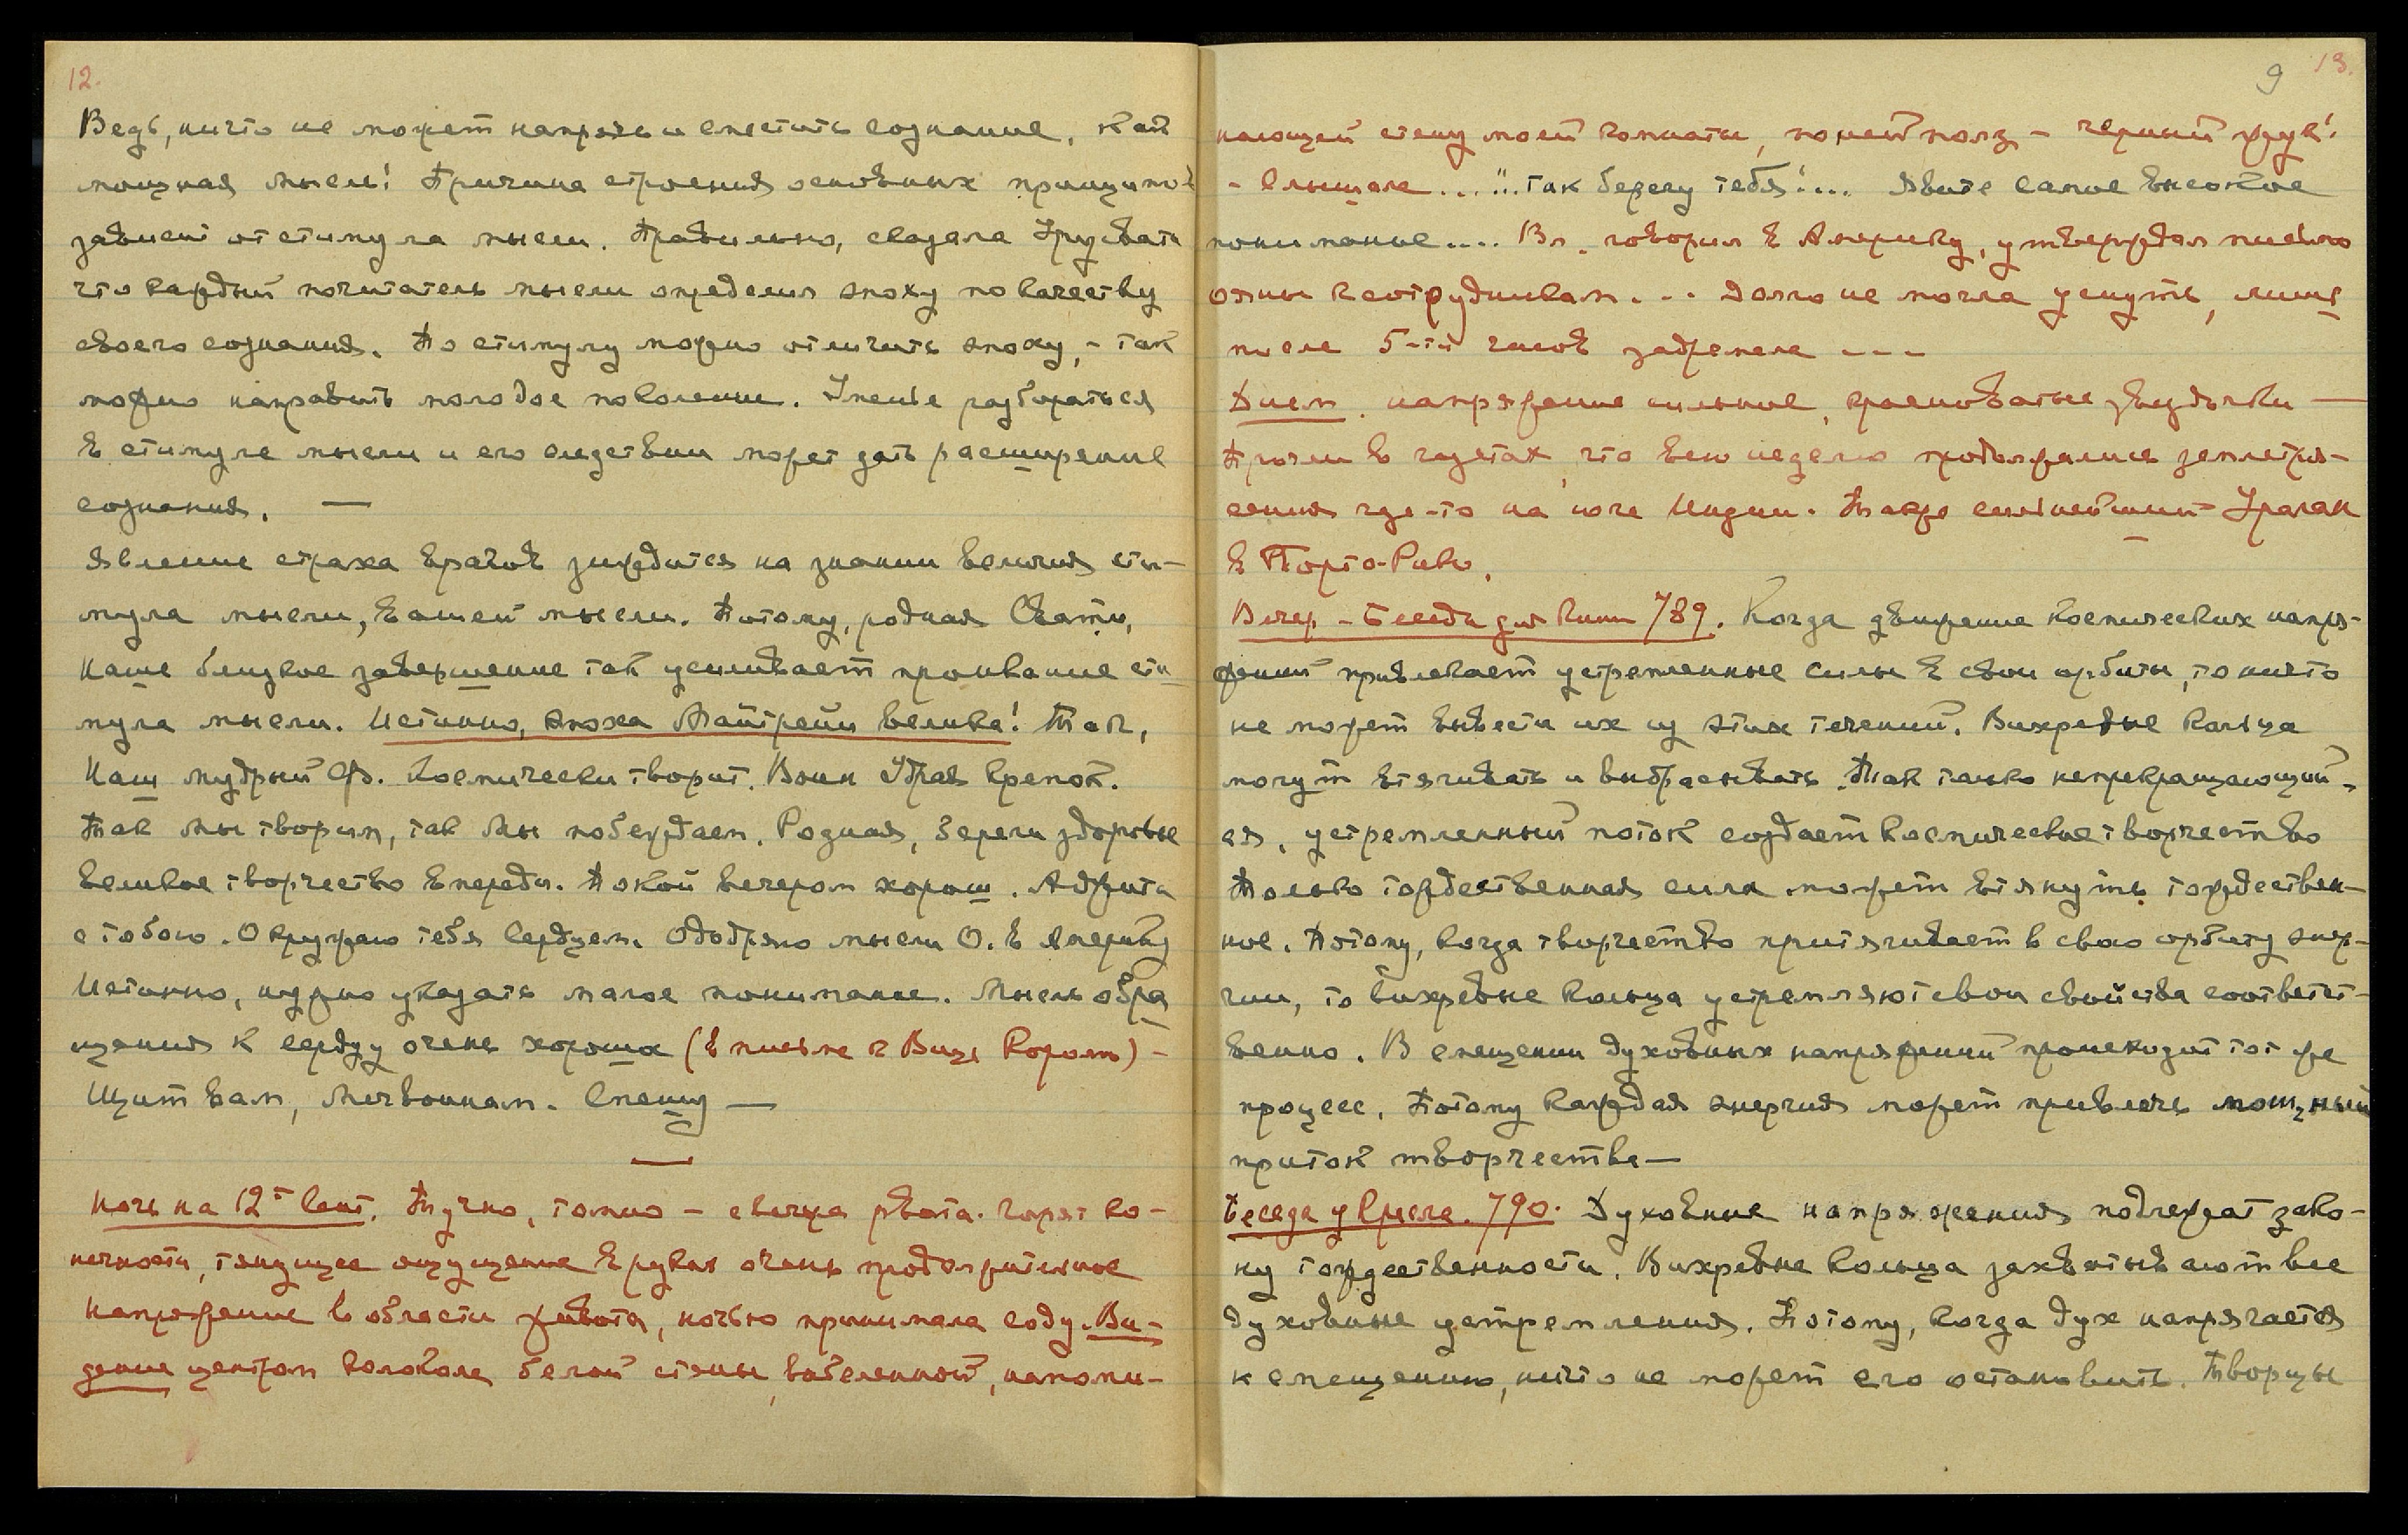 12.
Ведь, ничто не может напрячь и сместить сознание, как
мощная мысль! Причина строения основных принципов
зависит от стимула мысли. Правильно, сказала Урусвати
что каждый почитатель мысли определил эпоху по качеству
своего сознания. По стимулу можно отличить эпоху, - так
можно направить молодое поколение. Уменье разбираться
в стимуле мысли и его следствии может дать расширение
сознания. —
Явление страха врагов зиждится на знании величия сти-
мула мысли, вашей мысли. Потому, родная Свати,
наше близкое завершение так усиливает проникание сти
мула мысли. Истинно, эпоха Майтрейи велика! Так,
Наш мудрый Ф. космически творит. Воин Удрая крепок.
Так Мы творим, так Мы побеждаем. Родная, береги здоровье
великое творчество впереди. Покой вечером хорош. Аджита
с тобою. Окружаю тебя Сердцем. Одобряю мысли О. в Америку
Истинно, нужно указать малое понимание. Мысль обра
щения к сердцу очень хороша (в письме к Виц. Корот) -
Щит вам, Мечвоинам. Спешу —
—
Ночь на 12е Сент. Тучно, томно - свечка рвота. Горят ко-
нечности, тянущее ощущение в руках очень продолжительное
Напряжение в области живота, ночью принимала соду. Ви-
дение центром колокола белой стены, выбеленной, напоми-
9 13.
нающей стену моей комнаты, по ней полз - черный жук!
- Слышала... "..так берегу тебя!... Явите самое высокое
понимание.... Вл. говорил в Америку, утверждал письмо
отны к сотрудникам... Долго не могла уснуть, лишь
после 5-ти часов задремала ---
Днем. напряжение сильное, красноватые звездочки —
Прочли в газетах, что всю неделю продолжались землетря-
сения где-то на юге Индии. Также сильнейший Ураган
в Порто-Рико.
Вечер - Беседа для книги 789. Когда движение космических напря-
жений привлекает устремленные силы в свои орбиты, то ничто
не может вывести их из этих течений. Вихревые кольца
могут втягивать и выбрасывать. Так только непрекращающий-
ся, устремленный поток создает космическое творчество
Только тождественная сила может втянуть тождествен-
ное. Потому, когда творчество притягивает в свою орбиту энер-
гии, то вихревые кольца устремляют свои свойства соответст-
венно. В смещении духовных напряжений происходит тот же
процесс. Потому каждая энергия может привлечь мощный
приток творчества —
Беседа у Кресла. 790. Духовные напряжения подлежат зако-
ну тождественности. Вихревые кольца захватывают все
духовные устремления. Потому, когда дух напрягается
к смещению, ничто не может его остановить. Творцы